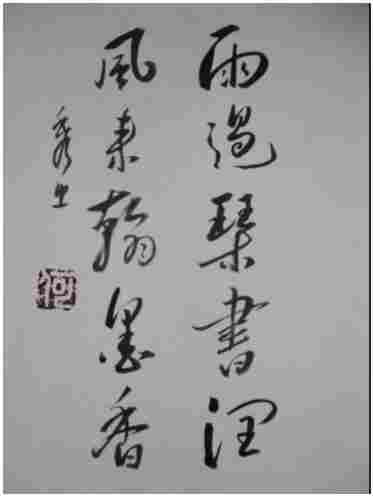 雨過琴書潤
風來翰墨香
秀生
何